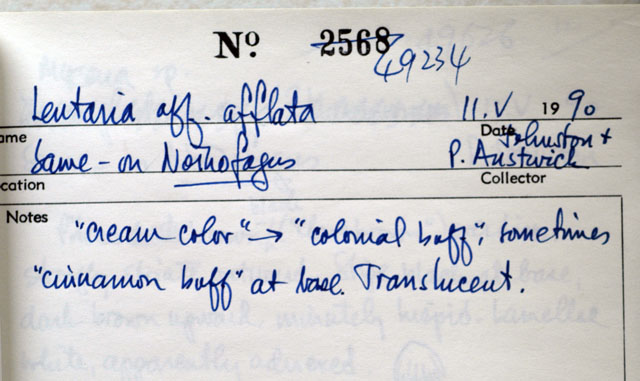 Nº 2568 49234
Lentaria aff. afflata 11.V 1990
ame Date Johnston +
Same - on Nothofagus P. Austwick
cation Collector
Notes "cream color" → "colonial buff"; sometimes
"cinnamon buff" at base. Translucent.